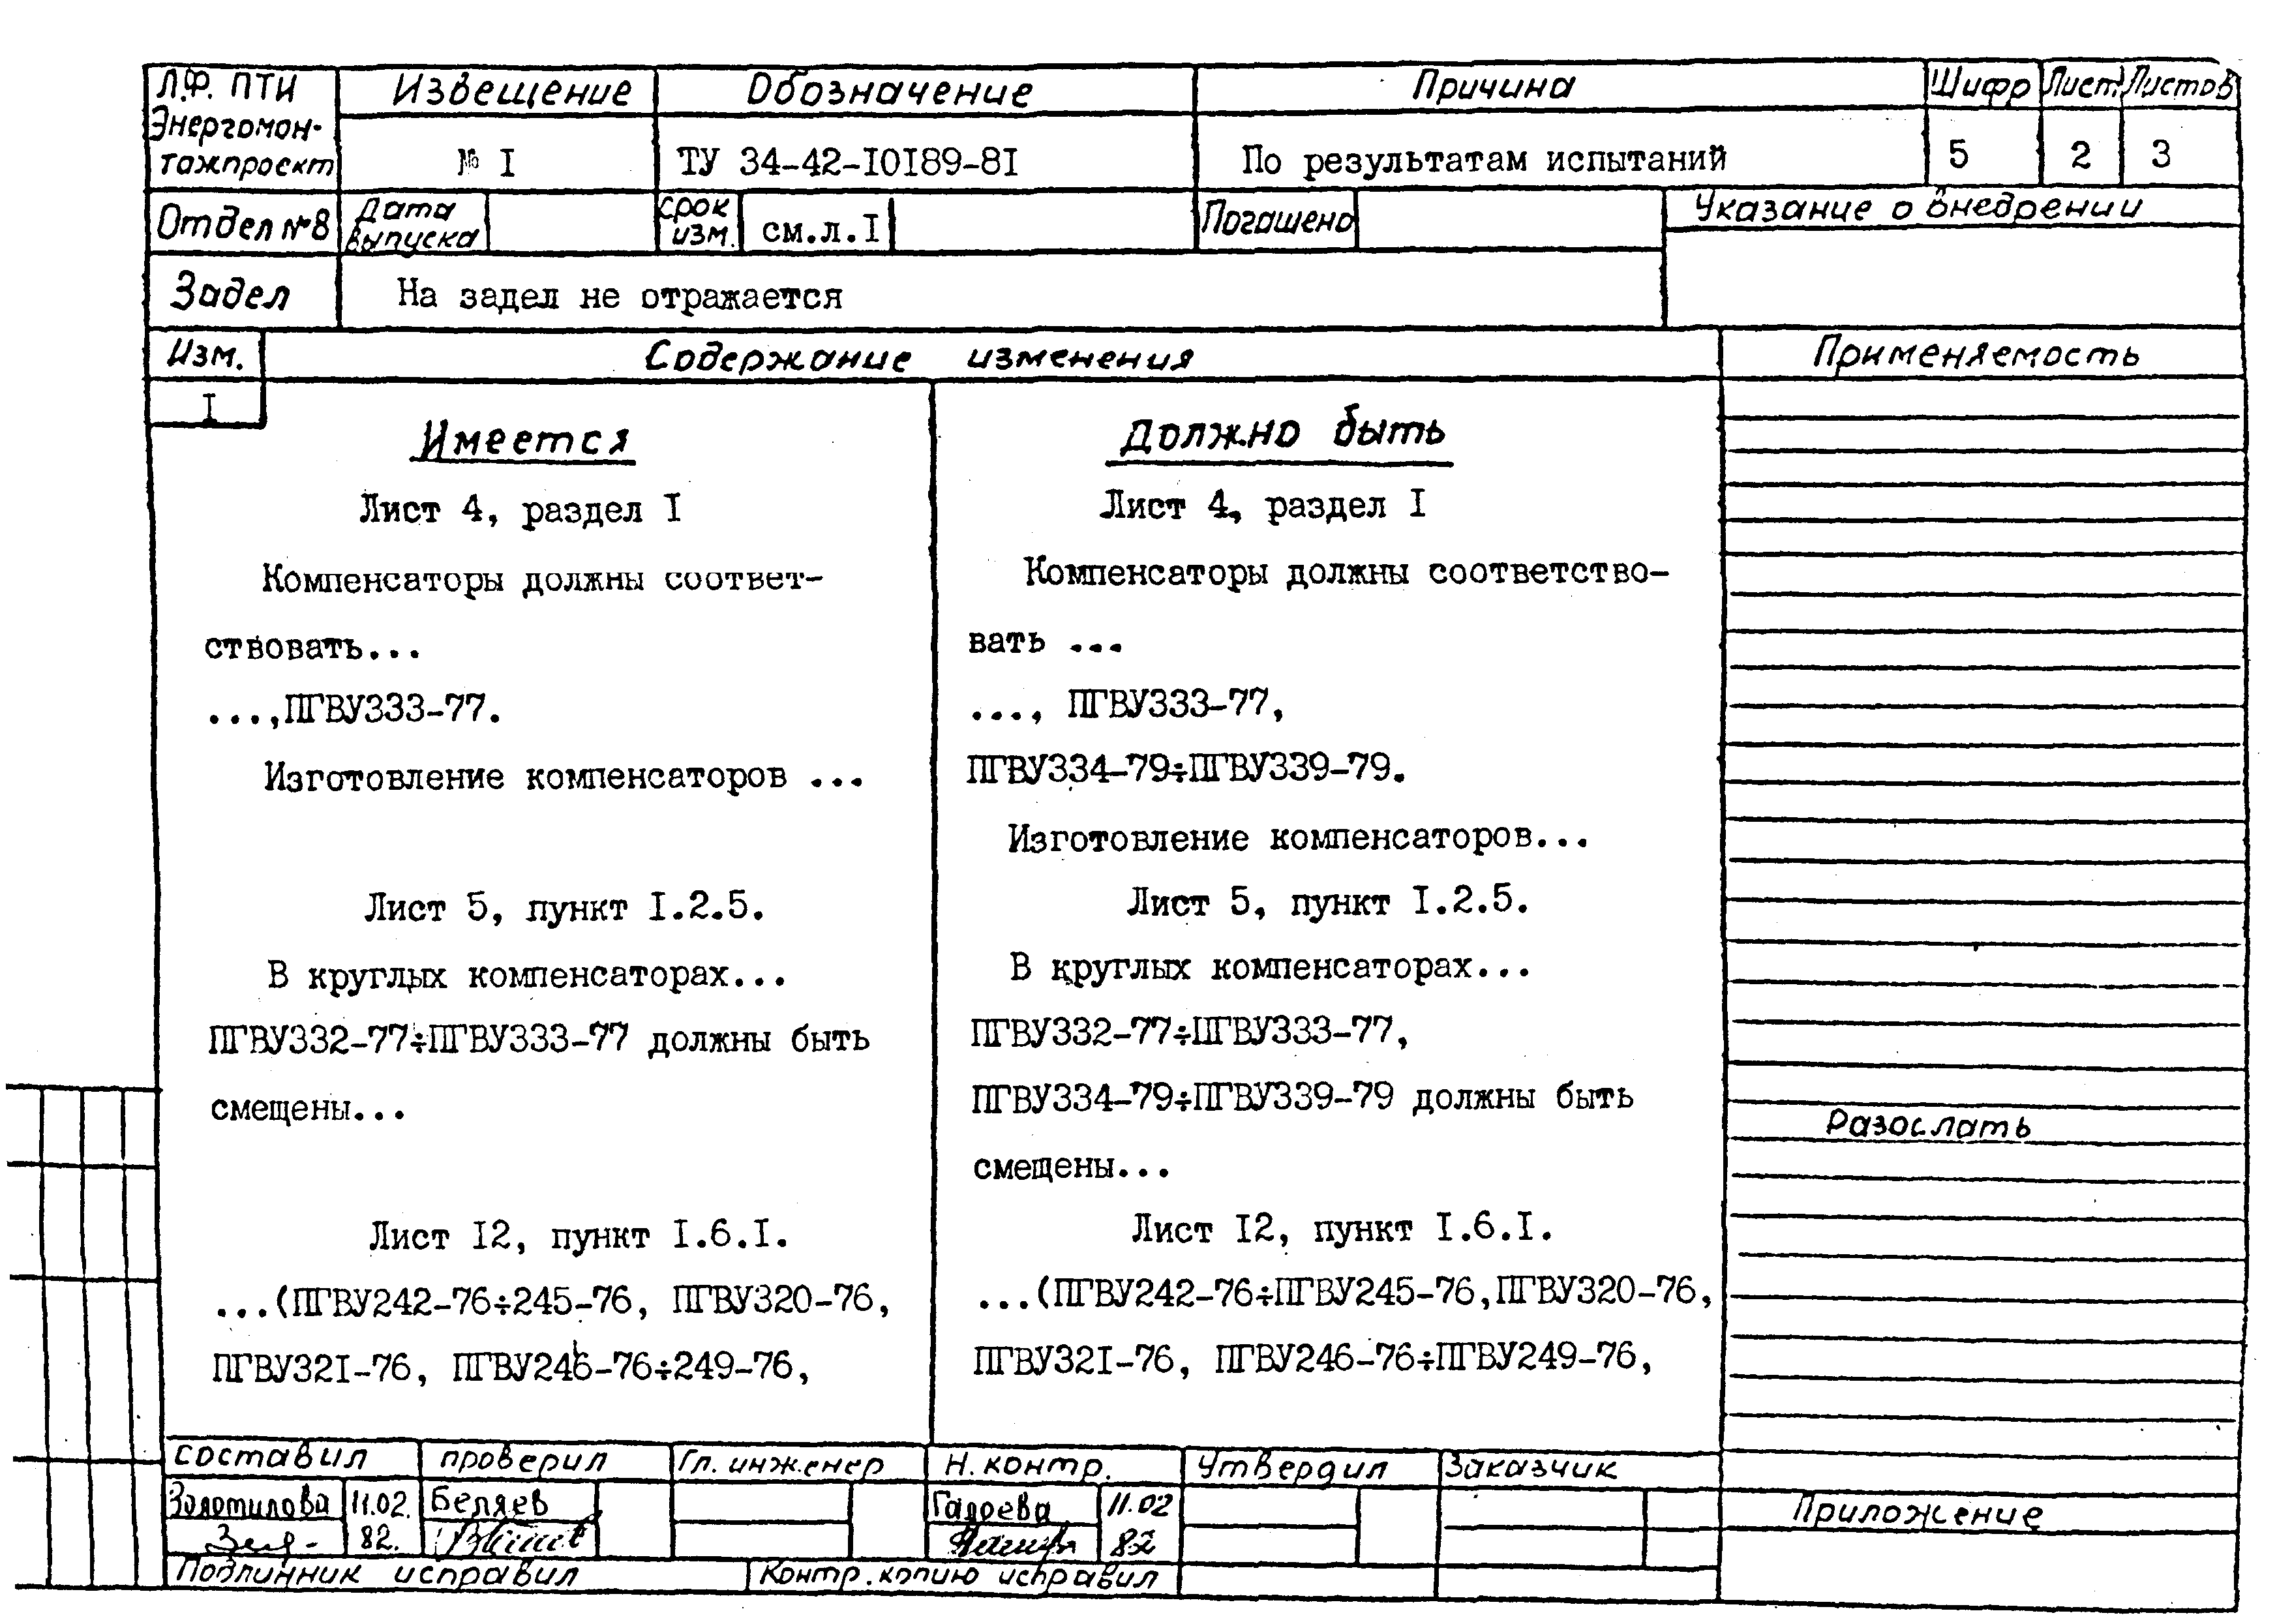 Л.Ф. ПТИ Извещение Обозначение Причина Шифр Лист Листов
Энергомон-
тажпроект № I ТУ 34-42-I0I89-8I По результатам испытаний 5 2 3
Отдел №8 Дата выпуска Срок изм. см.л.I Погашено Указание о внедрении
Задел На задел не отражается
Изм. Содержание изменения Применяемость
I
Имеется
Лист 4, раздел I
Компенсаторы должны соответ-
ствовать...
...,ПГВУ333-77.
Изготовление компенсаторов ...
Лист 5, пункт I.2.5.
В круглых компенсаторах...
ПГВУ332-77÷ПГВУ333-77 должны быть
смещены...
Лист I2, пункт I.6.I.
...(ПГВУ242-76÷245-76, ПГВУ320-76,
ПГВУ32I-76, ПГВУ246-76÷249-76,
Должно быть
Лист 4, раздел I
Компенсаторы должны соответство-
вать ...
..., ПГВУ333-77,
ПГВУ334-79÷ПГВУ339-79.
Изготовление компенсаторов...
Лист 5, пункт I.2.5.
В круглых компенсаторах...
ПГВУ332-77÷ПГВУ333-77,
ПГВУ334-79÷ПГВУ339-79 должны быть
смещены...
Лист I2, пункт I.6.I.
...(ПГВУ242-76÷ПГВУ245-76,ПГВУ320-76,
ПГВУ32I-76, ПГВУ246-76÷ПГВУ249-76,
Разослать
составил проверил Гл. инженер Н. контр. Утвердил Заказчик
Золотилова 11.02. Беляев Гадоева 11.02
82. 82
Приложение
Подлинник исправил Контр. копию исправил